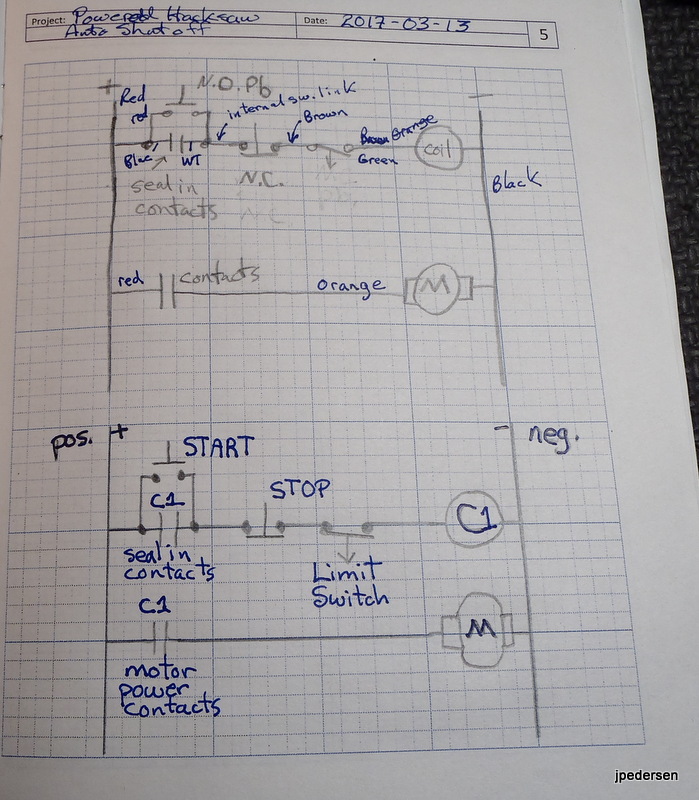 Project: Powered Hacksaw Date: 2017-03-13
Auto Shutoff 5
+ -
Red N.O. Pb
red internal sw. link
Brown
Orange
Blac WT Green coil
seal in N.C. Black
contacts
red contacts orange M
pos. + - neg.
START
C1 STOP
C1
seal in
contacts Limit
Switch
C1
M
motor
power
contacts
jpedersen